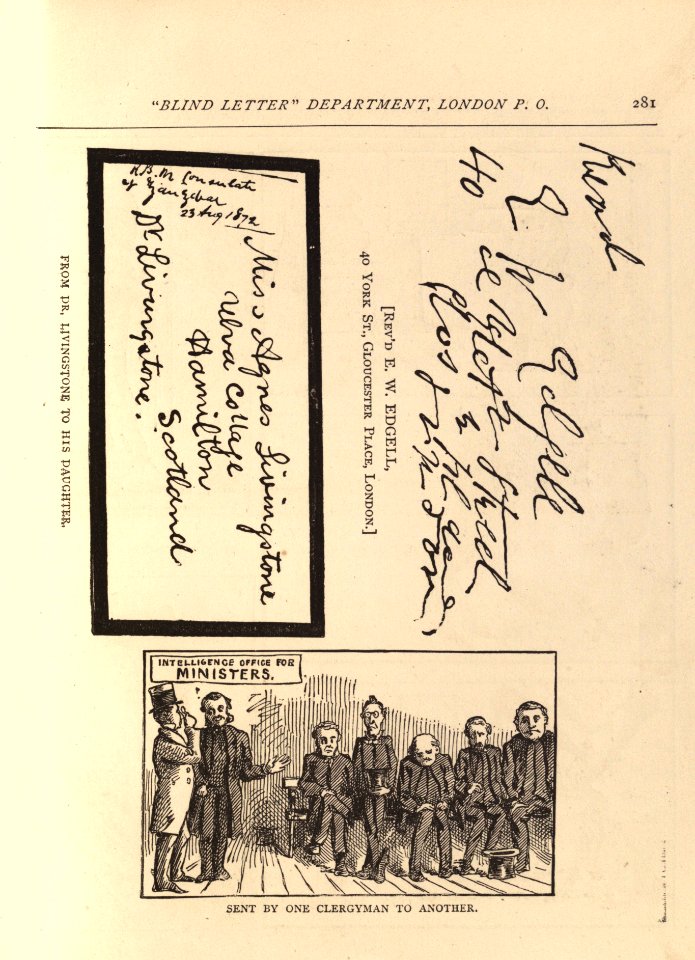 "BLIND LETTER" DEPARTMENT, LONDON P. O.
281
E W Edgell
40
Street
[REV'D E. W. EDGELL,
40 YORK ST., GLOUCESTER PLACE, LONDON.]
H.B.M Consulate
of Zanzibar
23 Aug 1872
Miss Agnes Livingstone
Ulva Cottage
Hamilton
Scotland
Dr Livingstone.
FROM DR. LIVINGSTONE TO HIS DAUGHTER.
INTELLIGENCE OFFICE FOR
MINISTERS.
SENT BY ONE CLERGYMAN TO ANOTHER.